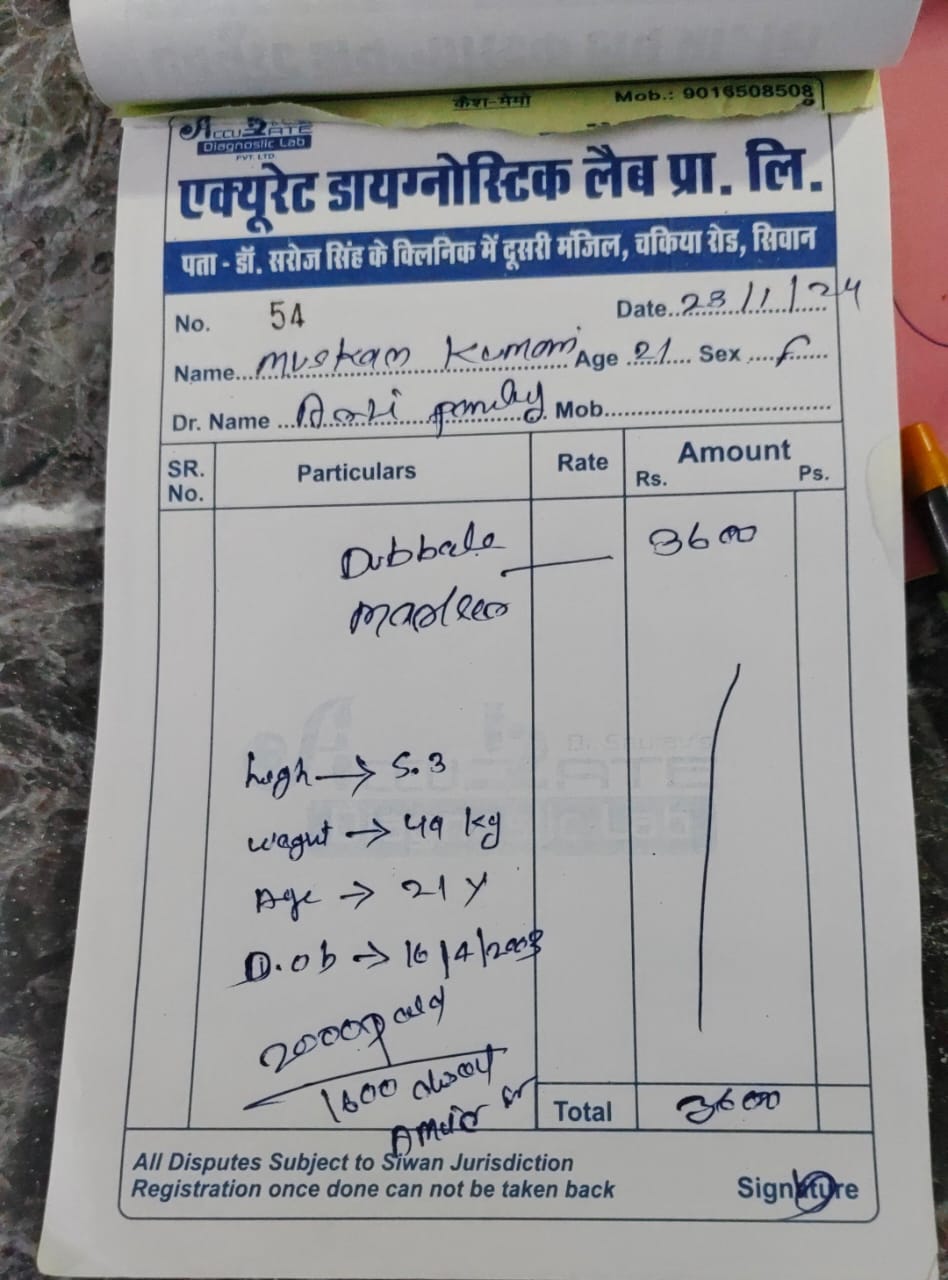 कैश-मेमो Mob.: 9016508508
ACCURATE
Diagnostic Lab
PVT. LTD.
एक्यूरेट डायग्नोस्टिक लैब प्रा. लि.
पता - डॉ. सरोज सिंह के क्लिनिक में दूसरी मंजिल, चकिया रोड, सिवान
No. 54 Date 23/1/24
Name Muskan Kumari Age 21 Sex F
Dr. Name Mob.
SR. No. Particulars Rate Amount Rs. Ps.
Dubbale 3600
Dr. Saurav's
ACCURATE
Diagnostic Lab
high → 5.3
wagut → 49 kg
Age → 21 Y
D.ob → 16/4/2003
2000 paid
1600
Total 3600
All Disputes Subject to Siwan Jurisdiction
Registration once done can not be taken back
Signature